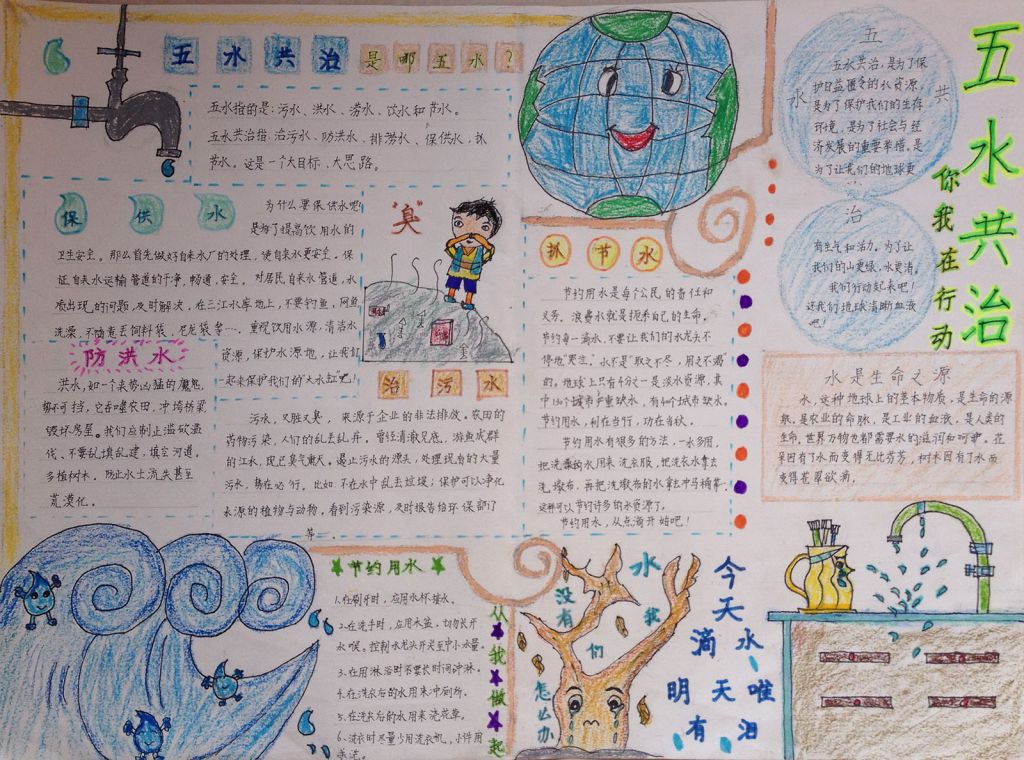 五水共治是哪五水？
五水指的是：污水、洪水、涝水、饮水和节水。
五水共治指：治污水、防洪水、排涝水、保供水、抓
节水。这是一个大目标、大思路。
保供水
为什么要保供水呢？
是为了提高饮用水的
卫生安全。那么首先做好自来水厂的处理，使自来水更安全。保
证自来水运输管道的干净，畅通，安全。对居民自来水管道，水
质出现的问题，及时解决，在三江水库地上，不要钓鱼，网鱼
洗澡，不随意丢饮料袋、尼龙袋等…，重视饮用水源，清洁水
资源，保护水源地，让我们
一起来保护我们的"大水缸"吧！
"臭"
防洪水
洪水，如一个来势凶猛的魔怒，
势不可挡，它吞噬农田，冲垮桥梁
毁坏房屋。我们应制止滥砍滥
伐、不要乱填乱建，填空河道。
多植树木，防止水土流失甚至
荒漠化。
治污水
污水，又脏又臭，来源于企业的非法排放。农田的
药物污染，人们的乱丢乱弃。曾经清澈见底，游鱼成群
的江水，现已臭气熏天。遏止污水的源头，处理现有的大量
污水，势在必行。比如不在水中乱丢垃圾；保护可以净化
水源的植物与动物。看到污染源，及时报告给环保部门
等…。
抓节水
节约用水是每个公民的责任和
义务，浪费水就是扼杀自己的生命。
节约每一滴水，不要让我们的水龙头不
停地"哭泣"。水不是"取之不尽，用之不竭"
的。地球上只有4分之一是淡水资源，其
中150个城市严重缺水，有400个城市缺水。
节约用水，利在当行，功在当秋。
节约用水有很多的方法，一水多用，
把洗澡的水用来洗衣服，把洗衣水拿去
洗墩布，再把洗墩布的水拿去冲马桶等…
这样可以节约许多的水资源了。
节约用水，从点滴开始吧！
五水共治
五水共治，是为了保
护日益匮乏的水资源，
是为了保护我们的生存
环境，是为了社会与经
济发展的重要举措，是
为了让我们的地球更
有生气和活力。为了让
我们的山更绿，水更清。
我们行动起来吧！
让我们地球清晰血液
吧！
五水共治
你我在行动
水是生命之源
水，这种地球上的基本物质，是生命的源
泉，是农业的命脉，是工业的血液，是人类的
生命，世界万物也都需要水的滋润和呵护。花
朵因有了水而变得无比芬芳，树木因有了水而
变得苍翠欲滴。
节约用水
1.在刷牙时，应用水杯接水。
2.在洗手时，应用水盆，切勿长开
水喉。控制水龙头开关至中小水量。
3.在用淋浴时不要长时间冲淋。
4.在洗衣后的水用来冲厕所。
5.在洗衣后的水用来浇花草。
6.洗衣时尽量少用洗衣机，小件用
手洗。
从我做起
没有水我们怎么办
今天滴水
明天唯有泪